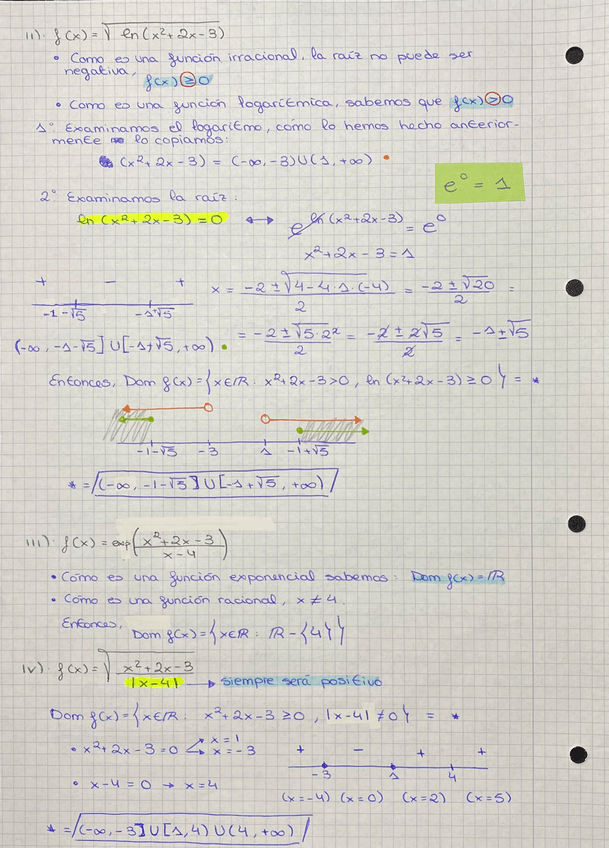 ii). f(x) = √ln(x²+2x-3)
• Como es una función irracional, la raíz no puede ser
negativa, f(x) ≥ 0
• Como es una función logarítmica, sabemos que f(x) > 0
1° Examinamos el logaritmo, como lo hemos hecho anterior-
mente lo copiamos:
(x²+2x-3) = (-∞,-3)∪(1,+∞)
e⁰ = 1
2° Examinamos la raíz:
ln(x²+2x-3)=0 ↔ e^(ln(x²+2x-3)) = e⁰
x²+2x-3=1
+ - +
-1-√5 -1+√5
x = (-2 ± √(4-4·1·(-4)))/2 = (-2 ± √20)/2 =
(-∞, -1-√5] ∪ [-1+√5, +∞)
= (-2 ± √(5·2²))/2 = (-2 ± 2√5)/2 = -1±√5
Entonces, Dom f(x) = {x∈ℝ : x²+2x-3>0, ln(x²+2x-3) ≥ 0} = *
-1-√5 -3 1 -1+√5
* = (-∞, -1-√5] ∪ [-1+√5, +∞)
iii). f(x) = exp((x²+2x-3)/(x-4))
• Como es una función exponencial sabemos: Dom f(x) = ℝ
• Como es una función racional, x ≠ 4.
Entonces,
Dom f(x) = {x∈ℝ : ℝ - {4}}
iv). f(x) = √((x²+2x-3)/|x-4|) → siempre será positivo
Dom f(x) = {x∈ℝ : x²+2x-3 ≥ 0, |x-4| ≠ 0} = *
• x²+2x-3=0 x=1
x=-3
+ - + +
-3 1 4
• x-4=0 → x=4
(x=-4) (x=0) (x=2) (x=5)
* = (-∞,-3] ∪ [1,4) ∪ (4,+∞)